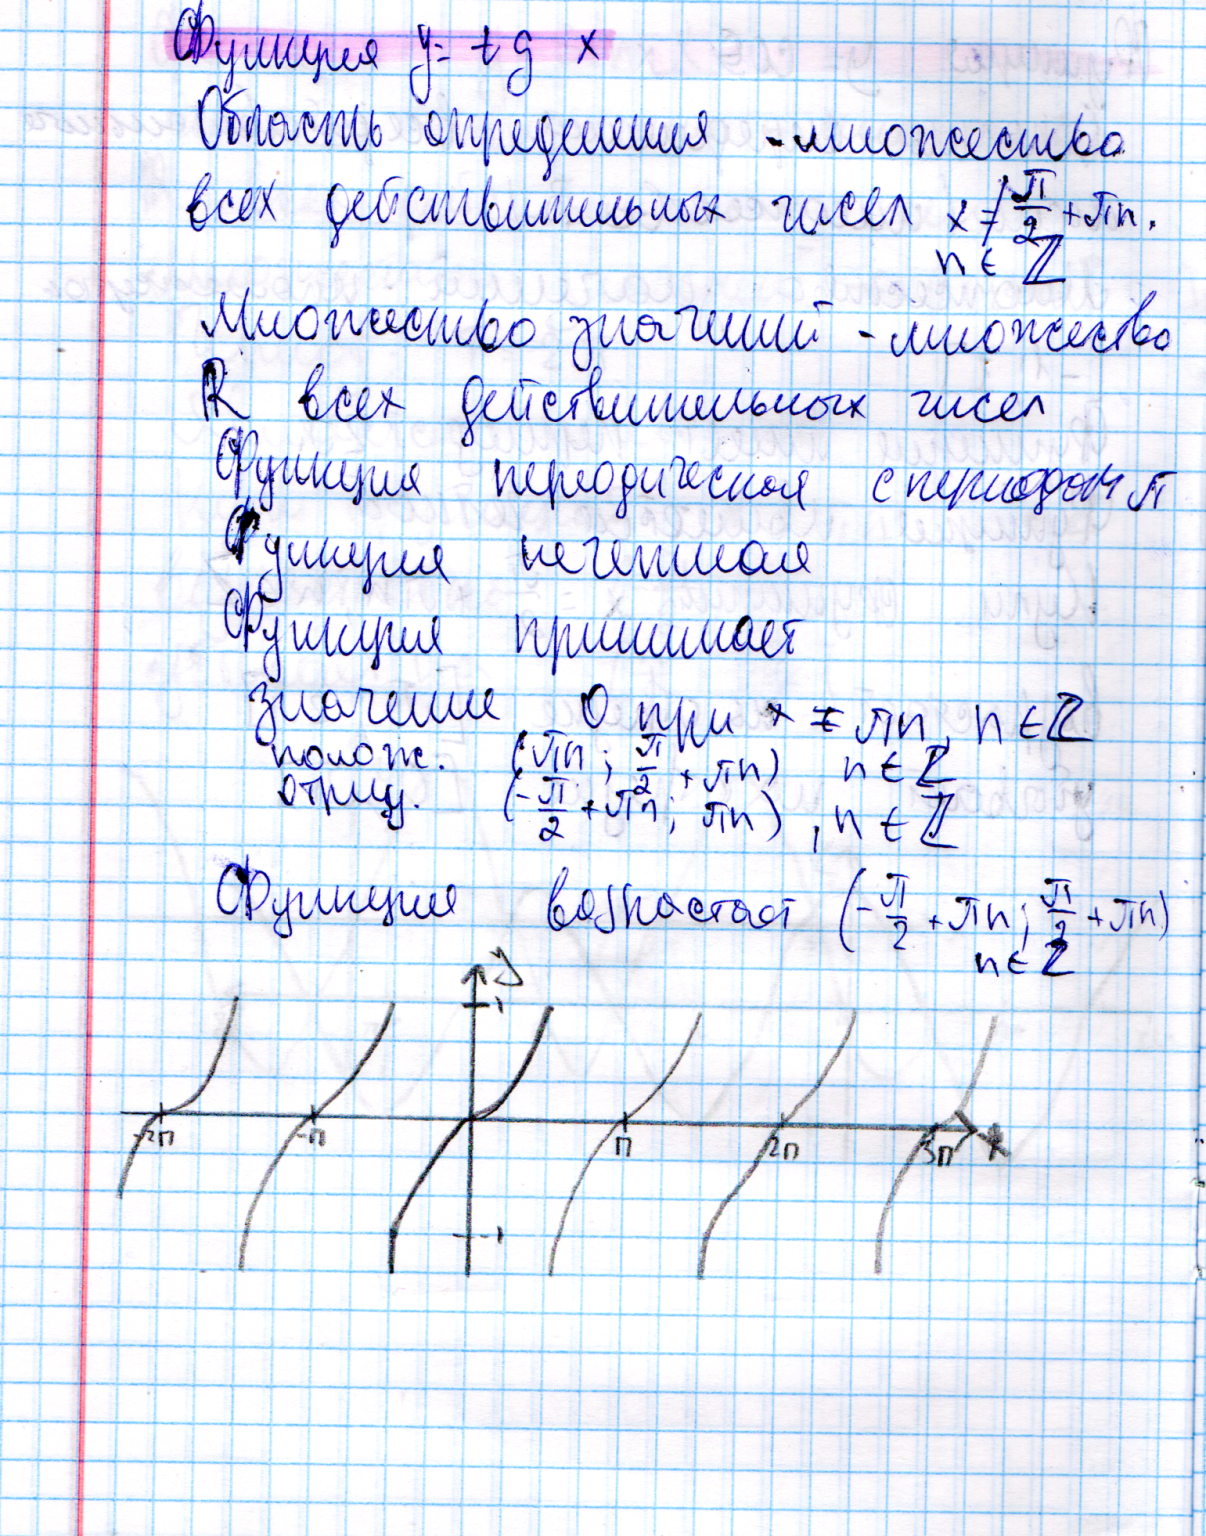 Функция y = tg x
Область определения - множество
всех действительных чисел x ≠ π/2 + πn.
n ∈ ℤ
Множество значений - множество
R всех действительных чисел
Функция периодическая с периодом π
Функция нечетная
Функция принимает
значение 0 при x = πn, n ∈ ℤ
полож. (πn; π/2 + πn) n ∈ ℤ
отриц. (-π/2 + πn; πn), n ∈ ℤ
Функция возрастает (-π/2 + πn; π/2 + πn)
n ∈ ℤ
y
1
-2π -π π 2π 3π x
-1